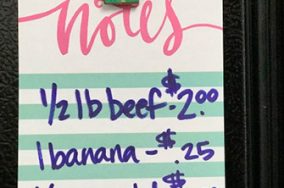 notes
1/2 lb beef - $2.00
1 banana - $.25